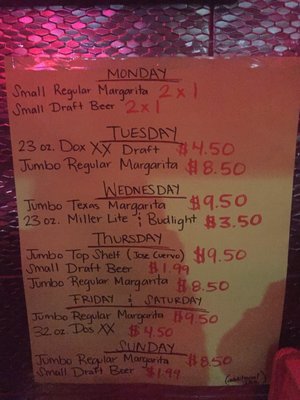 MONDAY
Small Regular Margarita 2 x 1
Small Draft Beer 2 x 1
TUESDAY
23 oz. Dox XX Draft $4.50
Jumbo Regular Margarita $8.50
WEDNESDAY
Jumbo Texas Margarita $9.50
23 oz. Miller Lite & Budlight $3.50
THURSDAY
Jumbo Top Shelf (Jose Cuervo) $9.50
Small Draft Beer $1.99
Jumbo Regular Margarita $8.50
FRIDAY & SATURDAY
Jumbo Regular Margarita $9.50
32 oz. Dos XX $4.50
SUNDAY
Jumbo Regular Margarita $8.50
Small Draft Beer $1.99